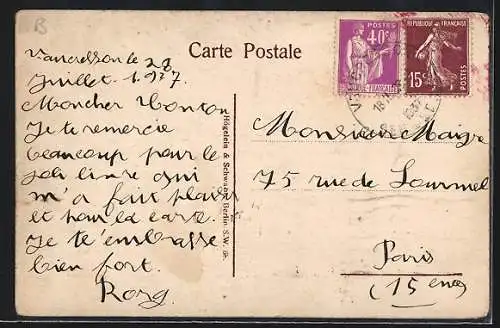 B
Carte Postale
Vaucresson le 28
Juillet 1937
Moncher Tonton
Je te remercie
beaucoup pour le
joli livre qui
m'a fait plaisir
et pour la carte.
Je te t'embrasse
bien fort.
Rosy
Högelein & Schwabe, Berlin S.W.
POSTES
40c
RÉPUBLIQUE FRANÇAISE
15c
POSTES
Monsieur Maigre
75 rue de Lourmel
Paris
(15eme)